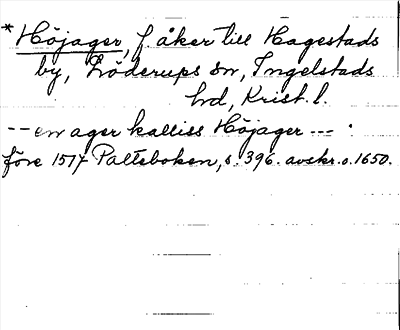 *Höjager, f. åker till Hagestads
by, Löderups sn, Ingelstads
hd, Krist. l.
-- en ager kalliss Höjager --- .
före 1517 Palteboken, s. 396. avskr. o. 1650.